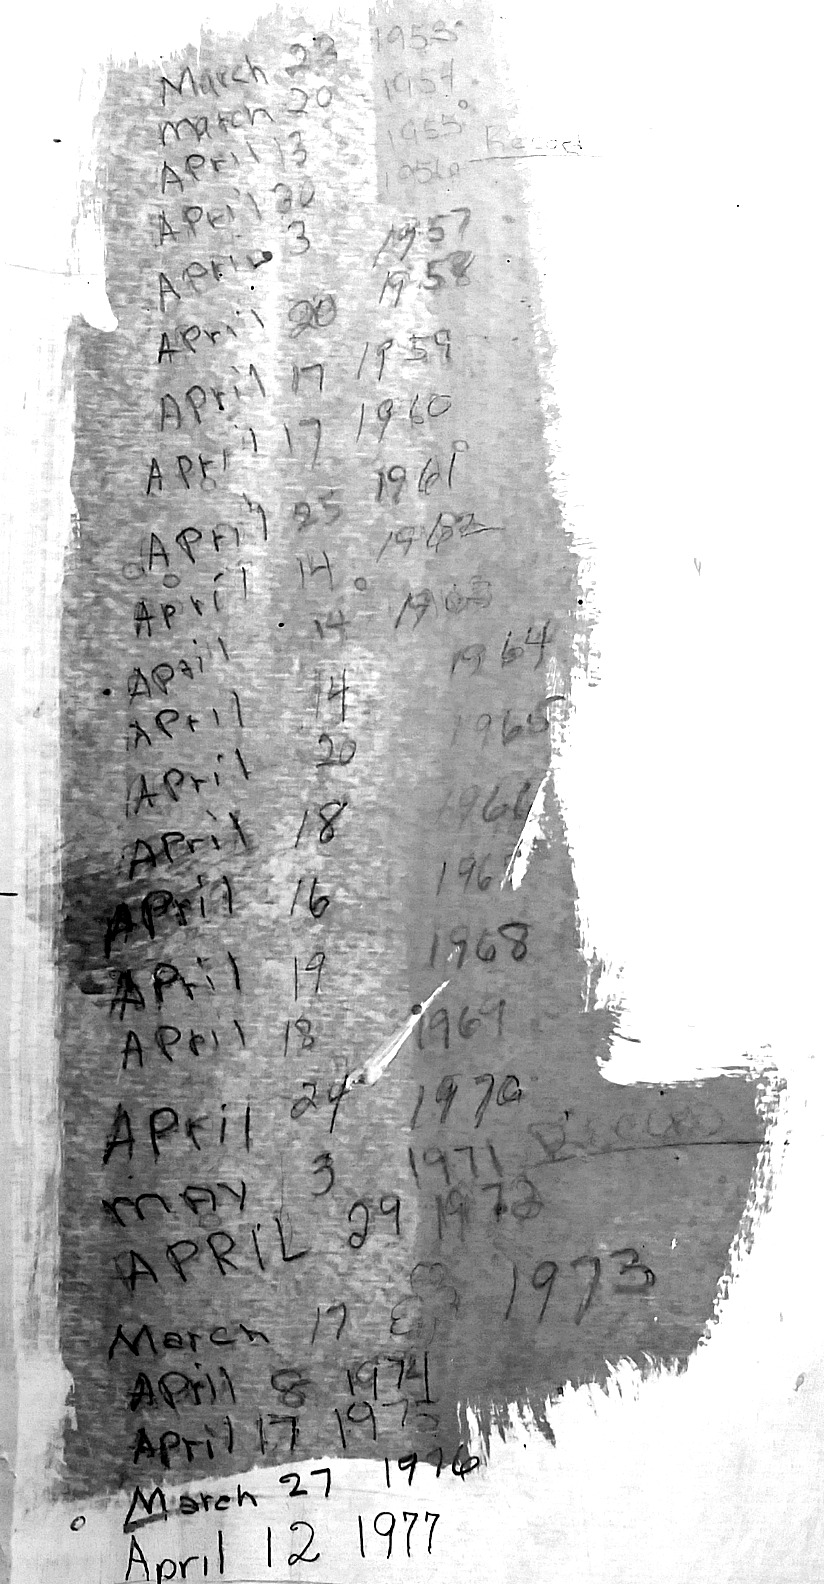 March 23 1953
march 20 1954
April 13 1955
April 30 1956 Record
April 3 1957
April 20 1958
April 17 1959
April 17 1960
April 25 1961
April 14 1962
April 14 1963
April 14 1964
April 20 1965
April 18 1966
April 16 1967
April 19 1968
April 18 1969
APril 24 1970
mAY 3 1971 Record
APRIL 29 1972
March 17 1973
April 8 1974
April 17 1975
March 27 1976
April 12 1977